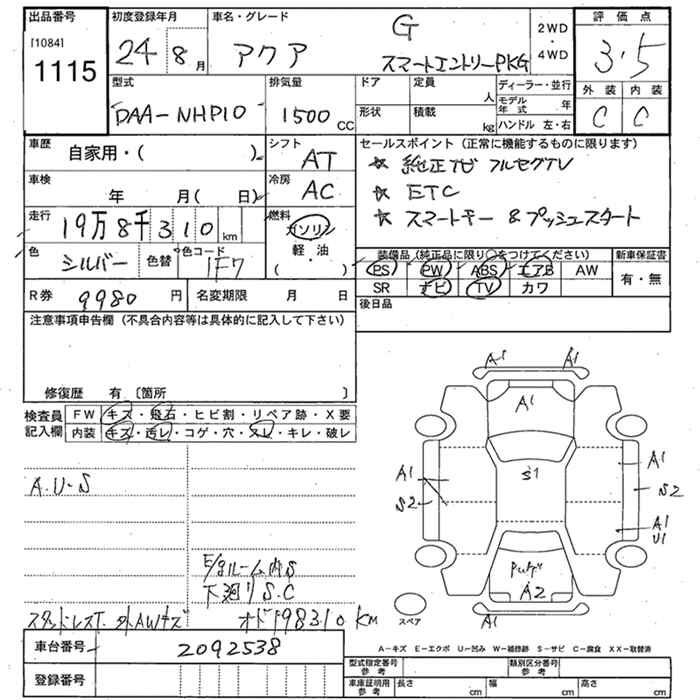 出品番号 初度登録年月 車名・グレード G 2WD・4WD 評価点
[1084] 1115 24 8月 アクア スマートエントリーPKG 3.5
外装 内装
C C
型式 排気量 ドア 定員 人 ディーラー・並行
DAA-NHP10 1500CC 形状 積載 kg モデル年式 年
ハンドル 左・右
車歴 自家用・( ) シフト AT セールスポイント(正常に機能するものに限ります)
☆ 純正ナビ フルセグTV
車検 年 月( 日) 冷房 AC ☆ ETC
走行 19万8千310km 燃料 ガソリン ☆ スマートキー & プッシュスタート
軽・油
( )
色 シルバー 色替 色コード 1F7
装備品(純正品に限り○をつけてください) 新車保証書
PS PW ABS エアB AW 有・無
SR ナビ TV カワ
R券 9980円 名変期限 月 日 後日品
注意事項申告欄(不具合内容等は具体的に記入して下さい)
修復歴 有〔箇所 〕
検査員記入欄 FW キズ・飛石・ヒビ割・リペア跡・X要
内装 キズ・汚レ・コゲ・穴・スレ・キレ・破レ
A1 A1
A1
S1
A1 A1
S2 S2
A1
U1
A2
A1
スペア
A.U-S
E/gルーム内S
下廻りS.C
スタッドレスT. 外AWキズ オド198310KM
A-キズ E-エクボ U-凹み W-補修跡 S-サビ C-腐食 XX-取替済
車台番号 2092538
登録番号
型式指定番号参考 類別区分番号参考
車庫証明用参考 長さ cm 幅 cm 高さ cm